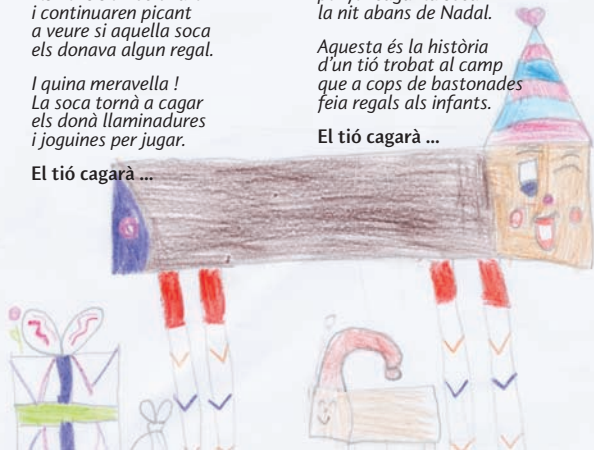 i continuaren picant
a veure si aquella soca
els donava algun regal.
I quina meravella !
La soca tornà a cagar
els donà llaminadures
i joguines per jugar.
El tió cagarà ...
la nit abans de Nadal.
Aquesta és la història
d'un tió trobat al camp
que a cops de bastonades
feia regals als infants.
El tió cagarà ...